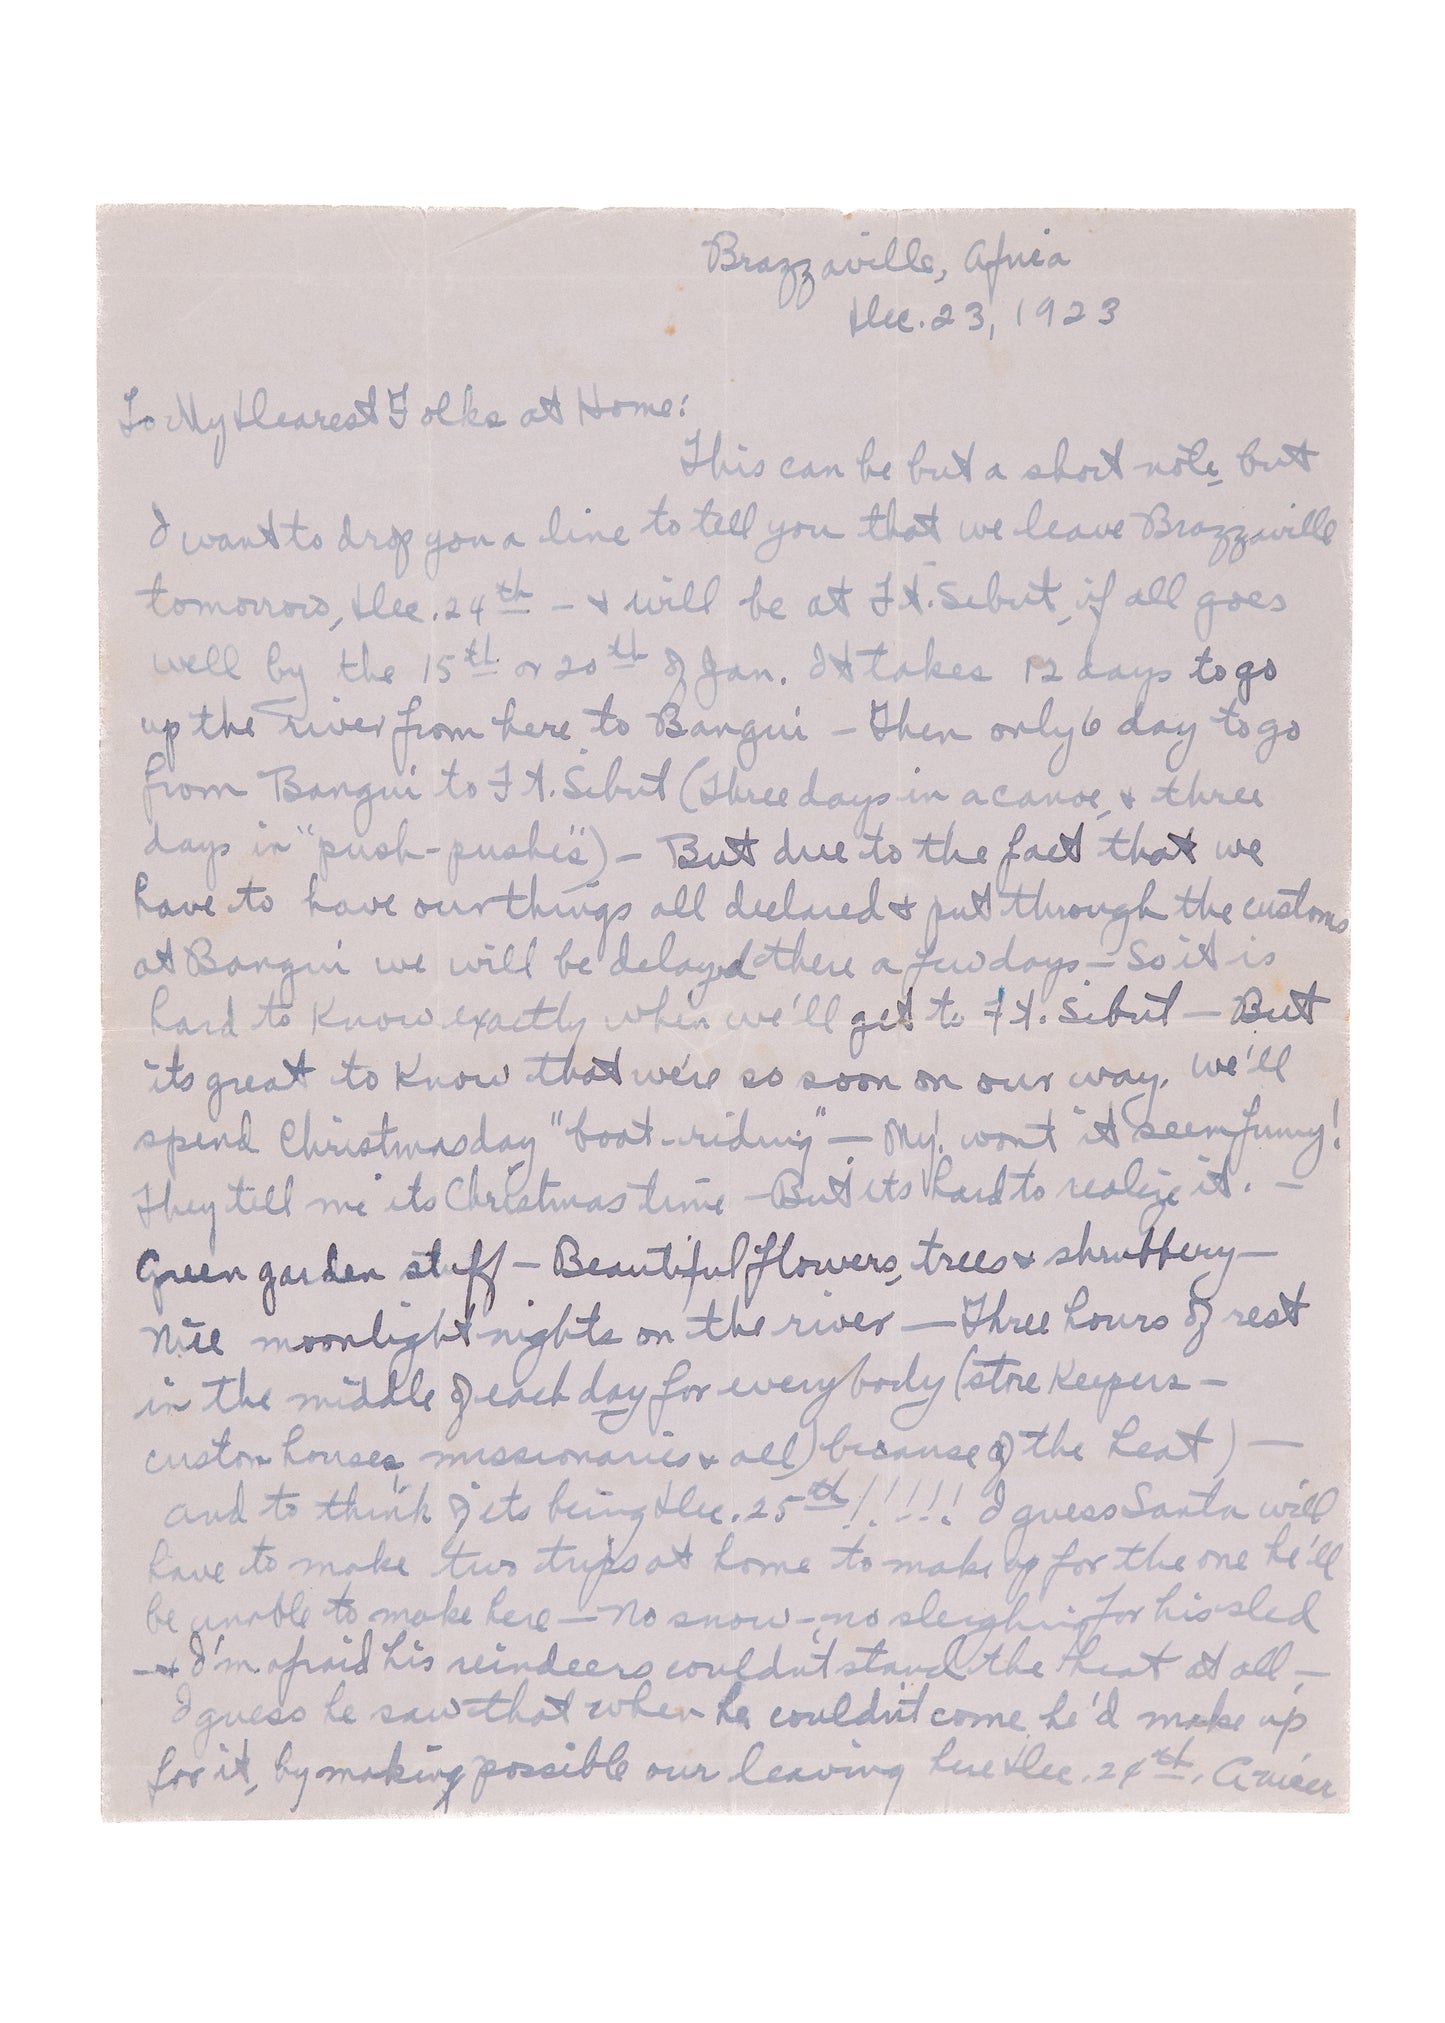 Brazzaville, Africa
Dec. 23, 1923
To My Dearest Folks at Home:
This can be but a short note, but
I want to drop you a line to tell you that we leave Brazzaville
tomorrow, Dec. 24th — & will be at Ft. Sibut, if all goes
well by the 15th or 20th of Jan. It takes 12 days to go
up the river from here to Bangui — Then only 6 day to go
from Bangui to Ft. Sibut (Three days in a canoe, & three
days in "push-pushes") — But due to the fact that we
have to have our things all declared & put through the customs
at Bangui we will be delayed there a few days — So it is
hard to know exactly when we'll get to Ft. Sibut — But
its great to know that we're so soon on our way. We'll
spend Christmas day "boat-riding" — My! wont it seem funny!
They tell me its Christmas time — But its hard to realize it. —
Green garden stuff — Beautiful flowers, trees & shrubbery —
Nice moonlight nights on the river — Three hours of rest
in the middle of each day for everybody (store keepers —
custom houses, missionaries & all) because of the heat) —
and to think of its being Dec. 25th!!!!! I guess Santa will
have to make two trips at home to make up for the one he'll
be unable to make here — No snow — no sleighing for his sled
— & I'm afraid his reindeers couldn't stand the heat at all, —
I guess he saw that when he couldn't come he'd make up
for it, by making possible our leaving here Dec. 24th. A nicer